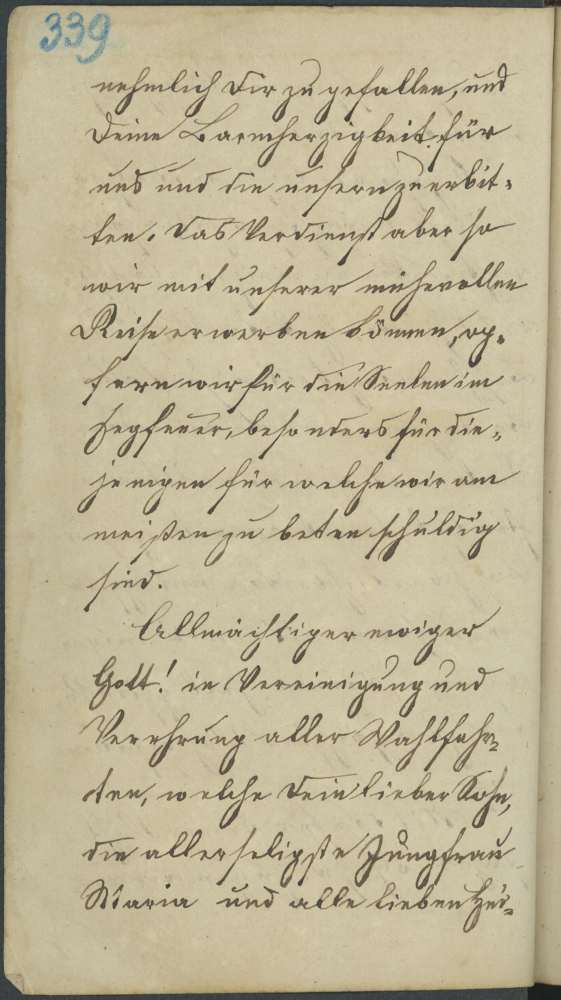 339
nehmlich Dir zu gefallen, und
Deine Barmherzigkeit für
uns und die unsern zu erbit-
ten. Das Verdienst aber so
wir mit unserer mühevollen
Reise erwerben können, op-
fern wir für die Seelen im
Fegfeuer, besonders für die-
jenigen für welche wir am
meisten zu beten schuldig
sind.
Allmächtiger ewiger
Gott! in Vereinigung und
Verehrung aller Wahlfahr-
ten, welche Dein lieber Sohn,
die allerseligste Jungfrau
Maria und alle lieben Hei-